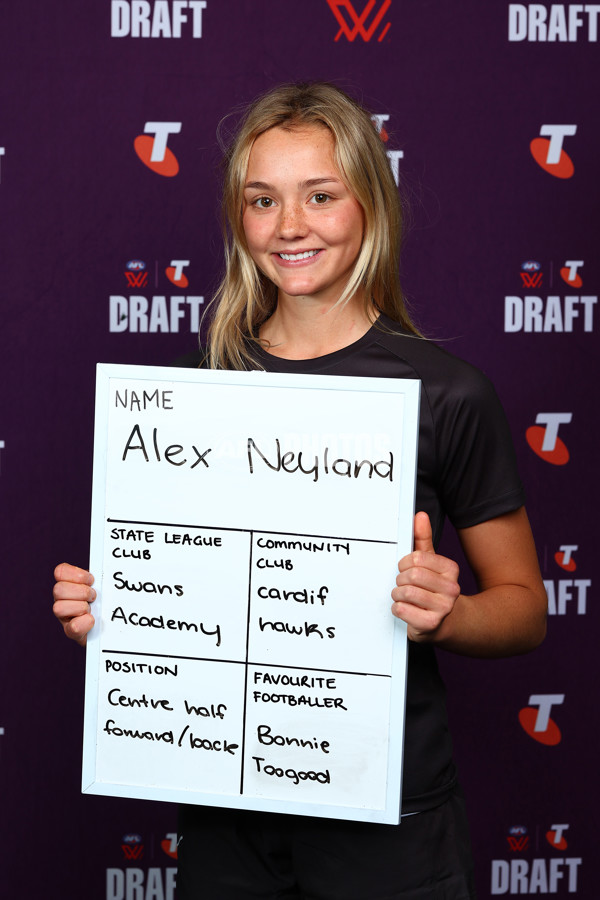 DRAFT
DRAFT
T
T
T
AFL
T
DRAFT
AFL
T
DRAFT
T
T
DRAFT
T
AFL
T
DRAFT
AFL
T
DRAFT
NAME
Alex Neyland
STATE LEAGUE
CLUB
Swans
Academy
COMMUNITY
CLUB
cardif
hawks
POSITION
Centre half
forward/back
FAVOURITE
FOOTBALLER
Bonnie
Toogood